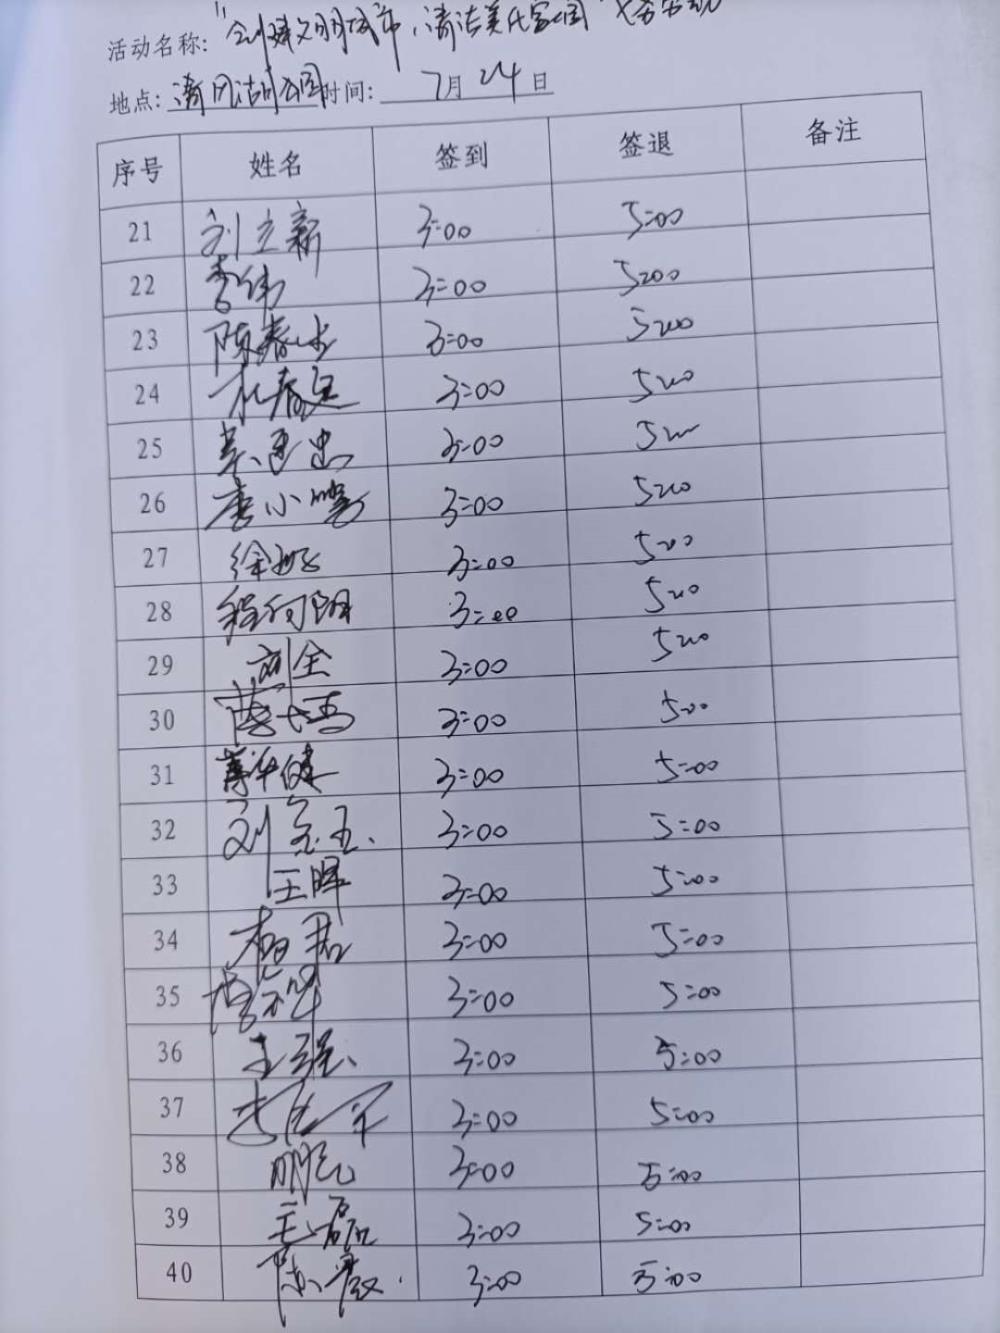 活动名称: "创建文明城市,清洁美化家园"
地点: 清风湖公园 时间: 7月24日
序号 姓名 签到 签退 备注
21 刘立新 3:00 5:00
22 李伟 3:00 5:00
23 陈春 3:00 5:00
24 3:00 5:00
25 3:00 5:00
26 李小鹏 3:00 5:00
27 徐 3:00 5:00
28 程向阳 3:00 5:00
29 刘全 3:00 5:00
30 3:00 5:00
31 健 3:00 5:00
32 刘 玉 3:00 5:00
33 王晖 3:00 5:00
34 3:00 5:00
35 3:00 5:00
36 王强 3:00 5:00
37 李 军 3:00 5:00
38 3:00 5:00
39 王磊 3:00 5:00
40 陈 3:00 5:00